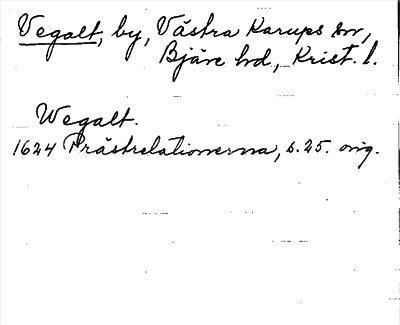 Vegalt, by, Västra Karups sn,
Bjäre hd., Krist. l.
Wegalt.
1624 Prästrelationerna, s. 25. orig.